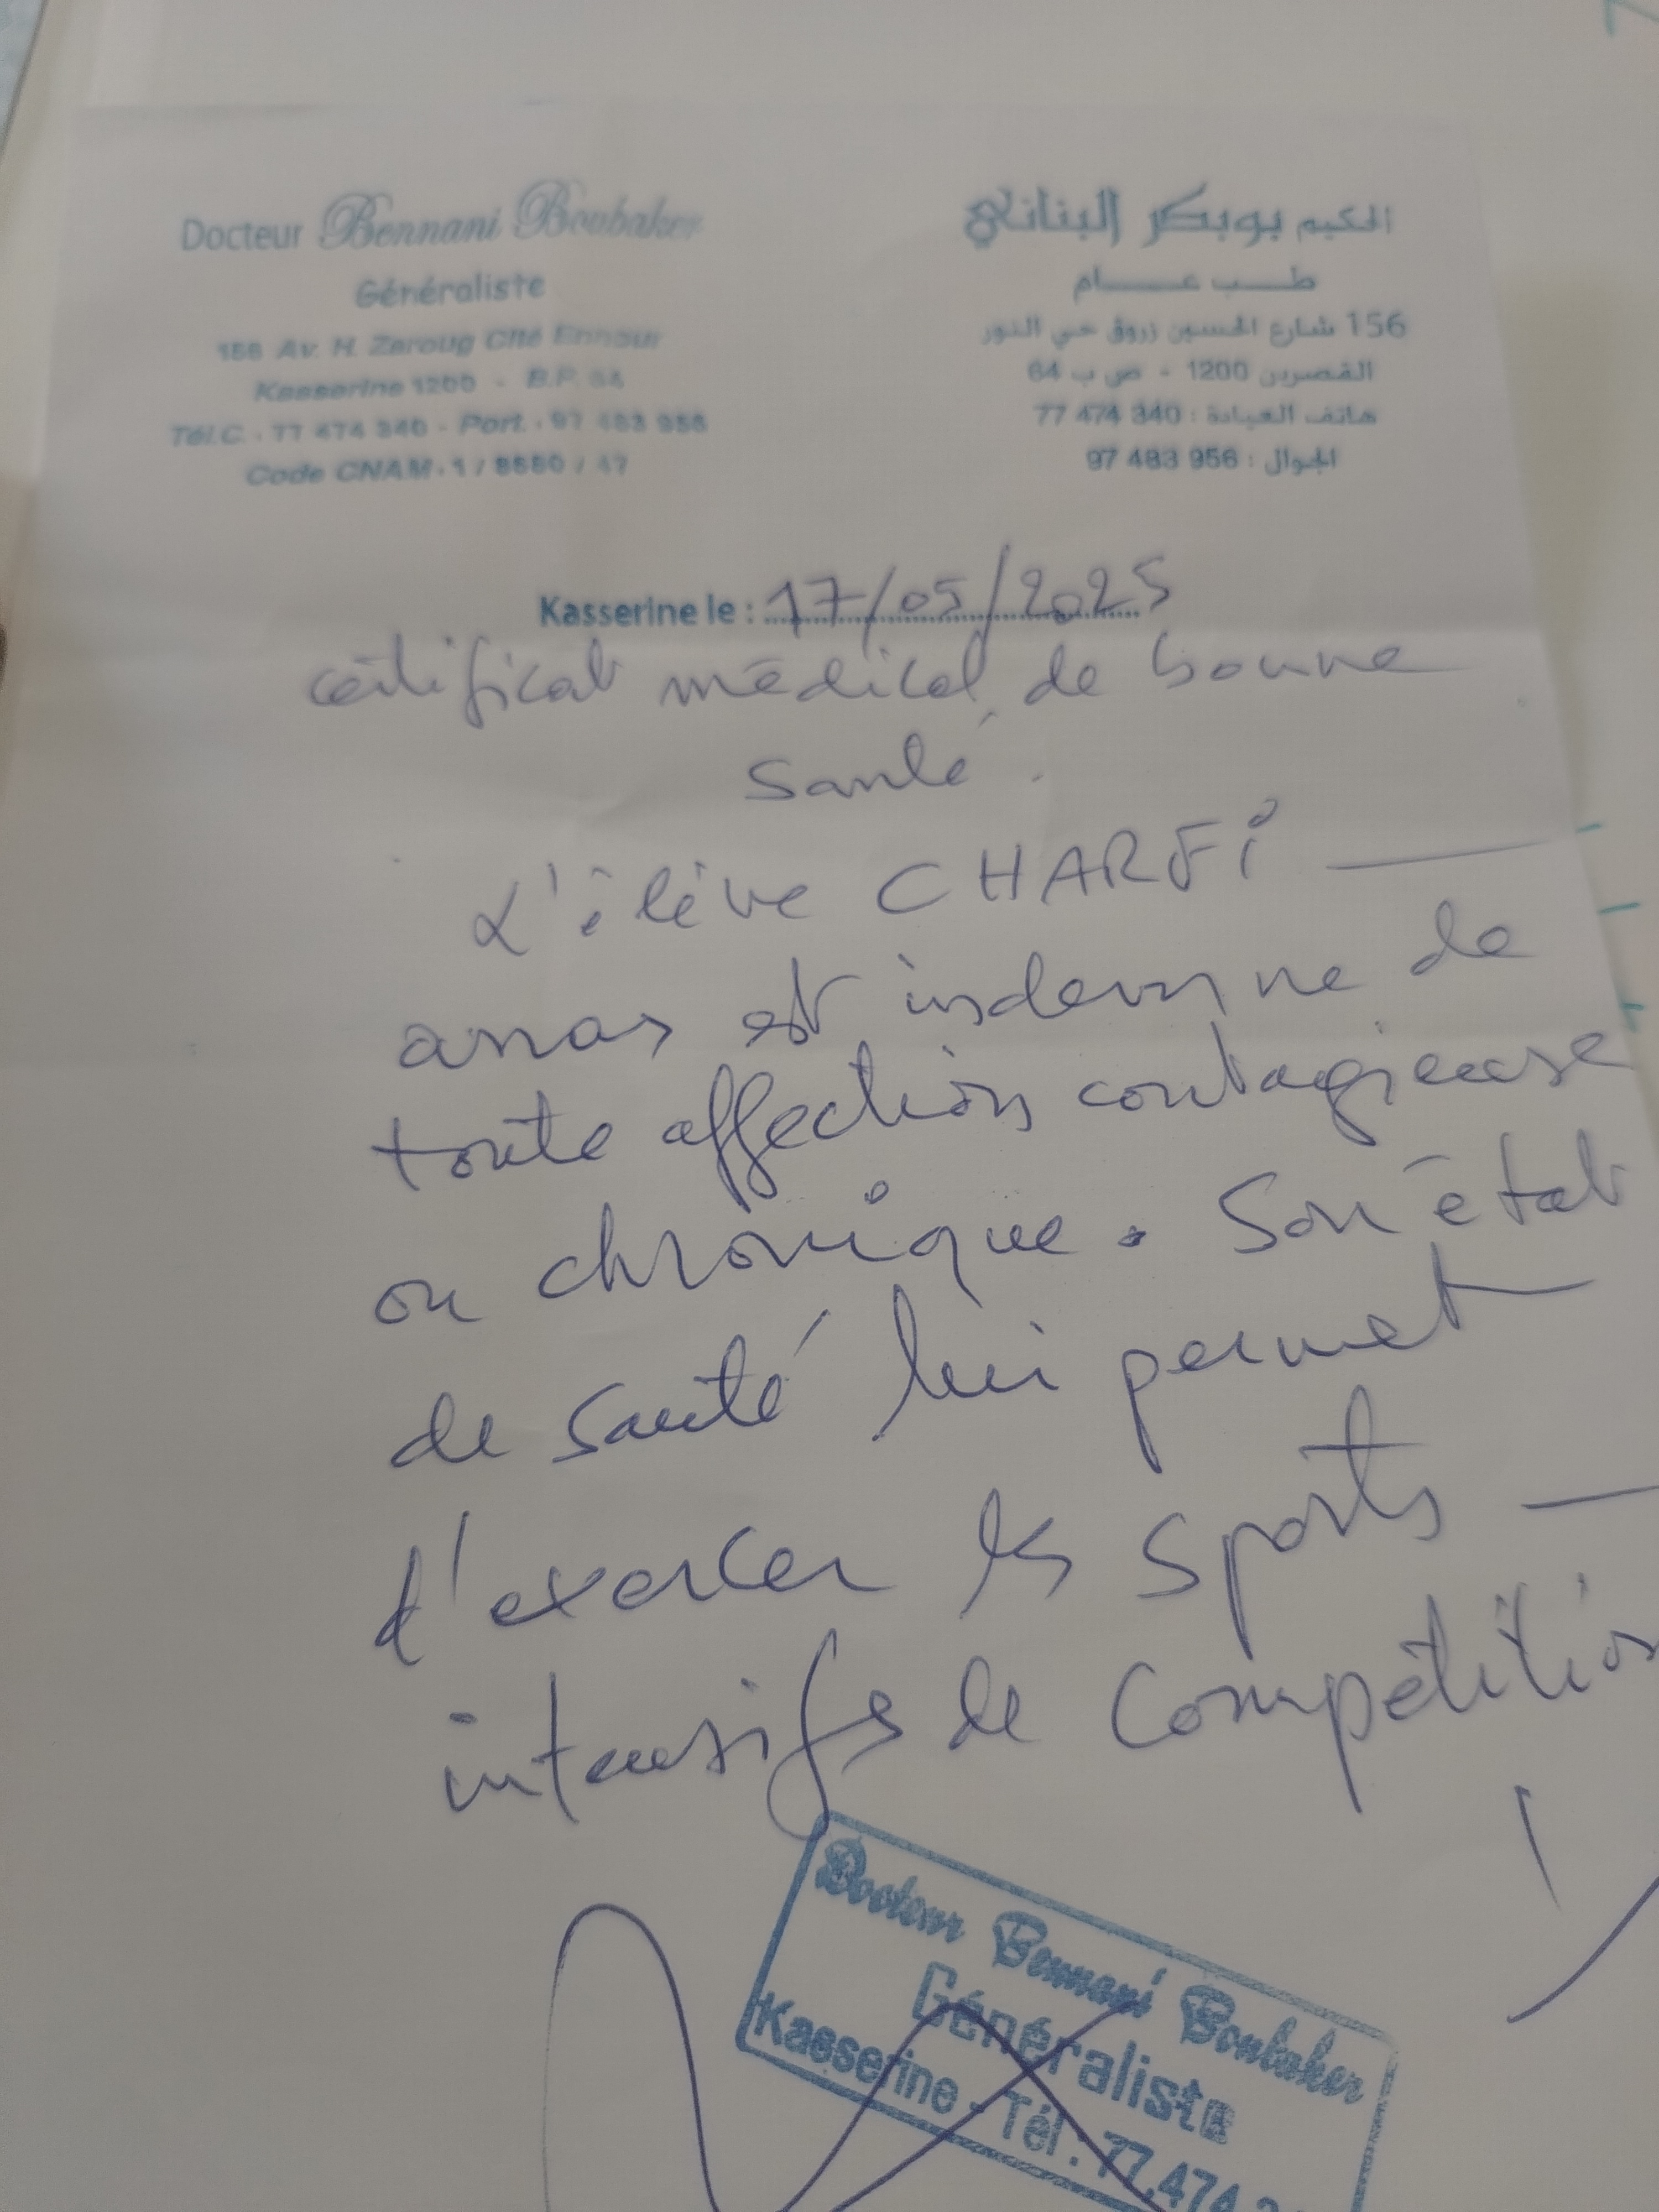 Docteur Bennani Boubaker
Généraliste
156 Av. H. Zaroug Cité Ennour
Kasserine 1200 - B.P. 64
Tél.C. : 77 474 340 - Port. : 97 483 956
Code CNAM : 1 / 8680 / 47
الحكيم بوبكر البناني
طب عام
156 شارع الحسين زروق حي النور
القصرين 1200 - ص ب 64
هاتف العيادة : 77 474 340
الجوال : 97 483 956
Kasserine le : 17/05/2025
certificat médical de bonne
santé.
L'élève CHARFi
anas est indemne de
toute affection contagieuse
ou chronique. Son état
de santé lui permet
d'exercer les sports
intensifs de Compétition
Docteur Bennani Boubaker
Généraliste
Kasserine - Tél : 77.474